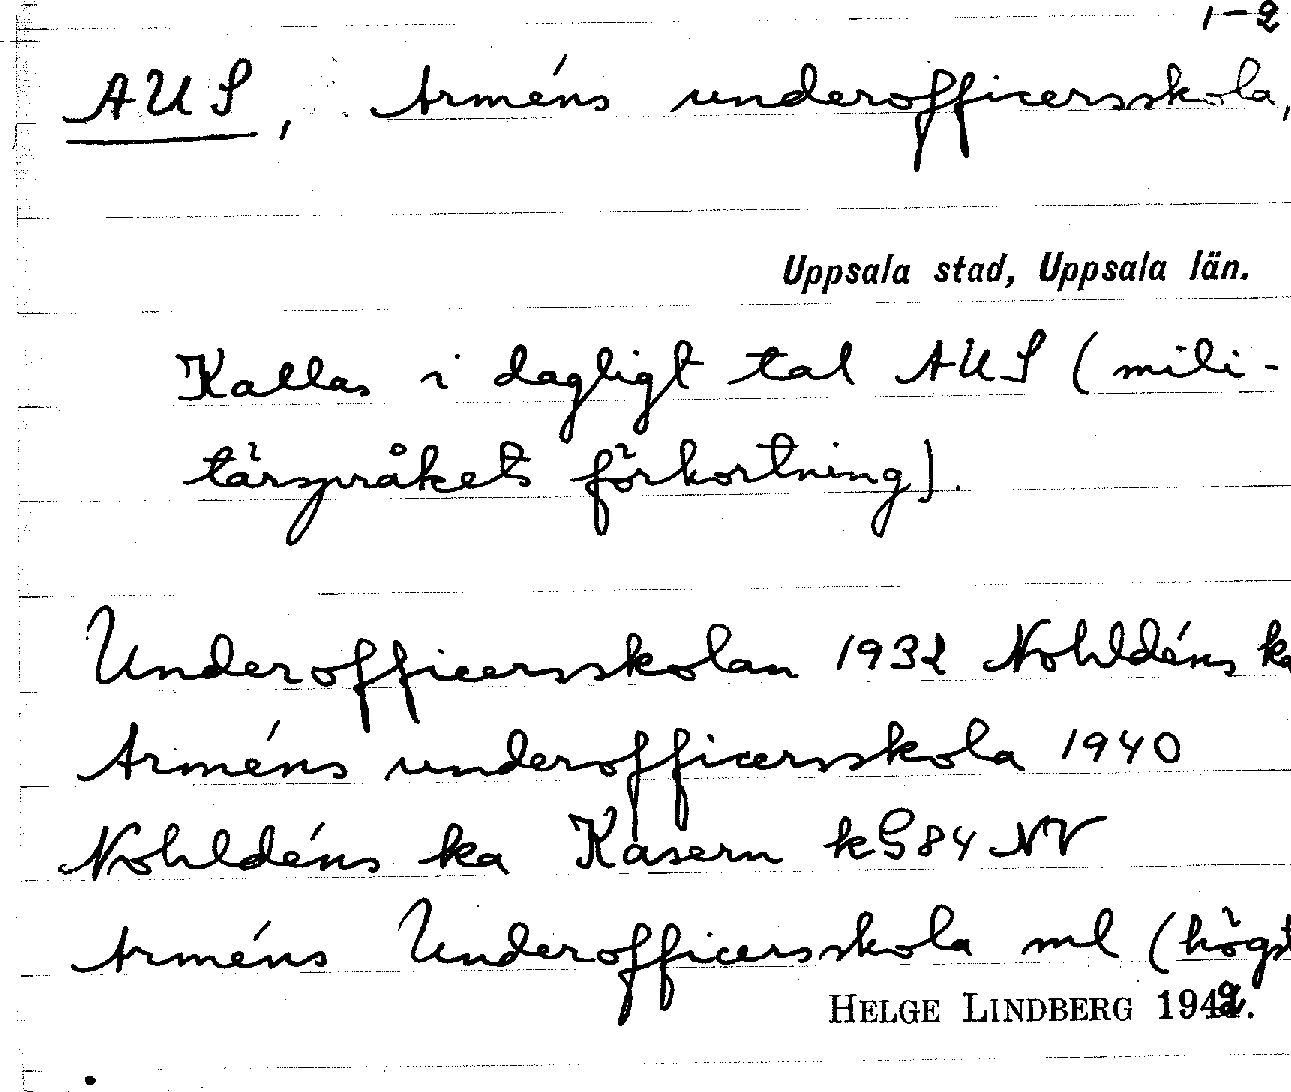 1-2
AUS, Arméns underofficersskola,
Uppsala stad, Uppsala län.
Kallas i dagligt tal AUS (mili-
tärspråkets förkortning).
Underofficersskolan 1932 Nohldéns ka
Arméns underofficersskola 1940
Nohldéns ka Kasern kG84 NV
Arméns Underofficersskola ml (högst
HELGE LINDBERG 1942.